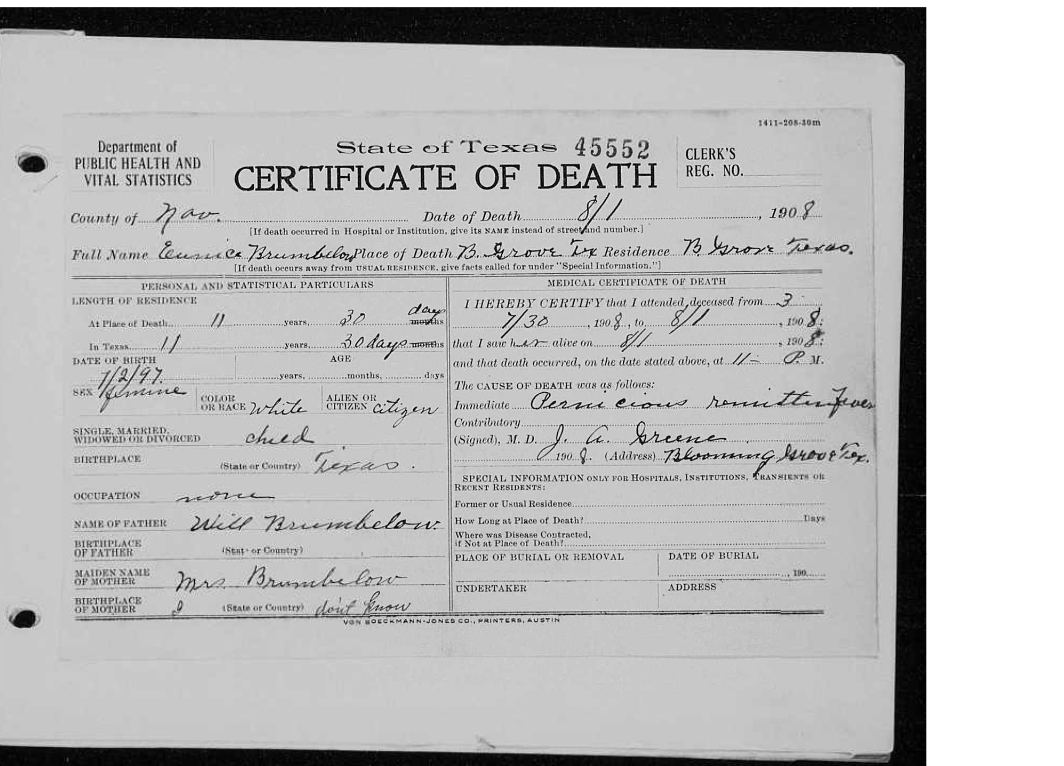 1411-208-30m
Department of
PUBLIC HEALTH AND
VITAL STATISTICS
State of Texas 45552
CERTIFICATE OF DEATH
CLERK'S
REG. NO.
County of Nav. Date of Death 8/1, 1908
[If death occurred in Hospital or Institution, give its NAME instead of street and number.]
Full Name Eunice Brumbelow Place of Death B. Grove Tex Residence B Grove Texas.
[If death occurs away from USUAL RESIDENCE, give facts called for under "Special Information."]
PERSONAL AND STATISTICAL PARTICULARS
LENGTH OF RESIDENCE
At Place of Death 11 years, 30 days months
In Texas 11 years, 30 days months
DATE OF BIRTH AGE
7/2/97. years, months, days
SEX femine COLOR OR RACE White ALIEN OR CITIZEN citizen
SINGLE, MARRIED,
WIDOWED OR DIVORCED child
BIRTHPLACE (State or Country) Texas.
OCCUPATION none
NAME OF FATHER Will Brumbelow.
BIRTHPLACE
OF FATHER (State or Country)
MAIDEN NAME
OF MOTHER Mrs Brumbelow
BIRTHPLACE
OF MOTHER I (State or Country) don't know
MEDICAL CERTIFICATE OF DEATH
I HEREBY CERTIFY that I attended deceased from 3
7/30, 1908, to 8/1, 1908;
that I saw her alive on 8/1, 1908;
and that death occurred, on the date stated above, at 11- P. M.
The CAUSE OF DEATH was as follows:
Immediate Pernicious remitten Fever
Contributory
(Signed), M. D. J. A. Greene
1908. (Address) Blooming Grove Tex.
SPECIAL INFORMATION ONLY FOR HOSPITALS, INSTITUTIONS, TRANSIENTS OR
RECENT RESIDENTS:
Former or Usual Residence
How Long at Place of Death? Days
Where was Disease Contracted,
if Not at Place of Death?
PLACE OF BURIAL OR REMOVAL DATE OF BURIAL
, 190
UNDERTAKER ADDRESS
VON BOECKMANN-JONES CO., PRINTERS, AUSTIN